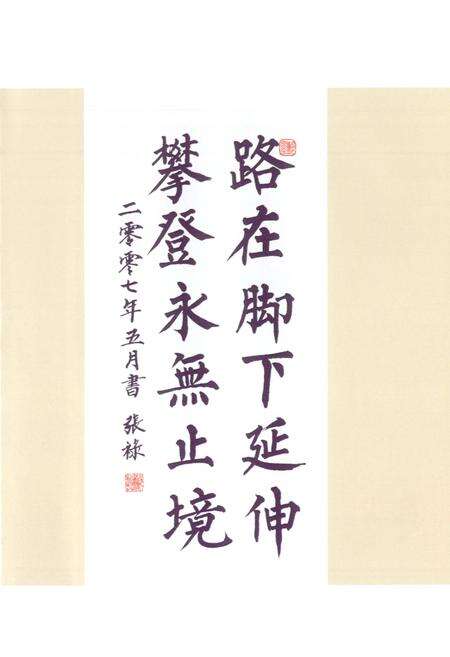 路在脚下延伸
攀登永無止境
二零零七年五月書 張祿